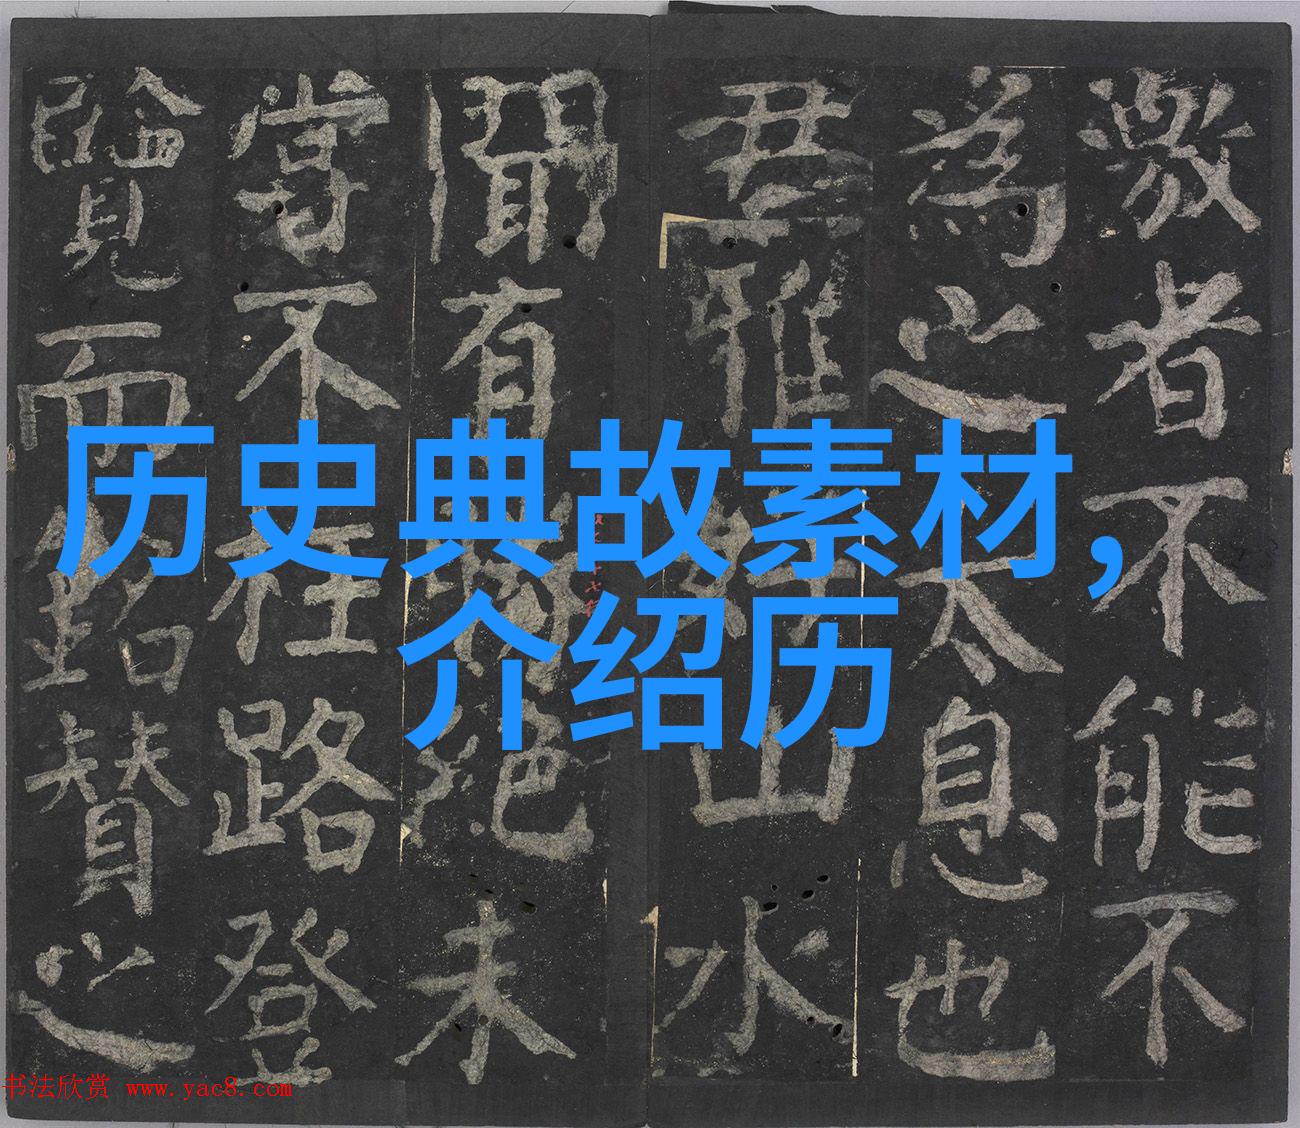 激者不能不
為之太息也
君雅山水
聞有絕未
嘗不枉路登
覽而銘贊之
历史典故素材，
介绍历
书法欣赏 www.yac8.com